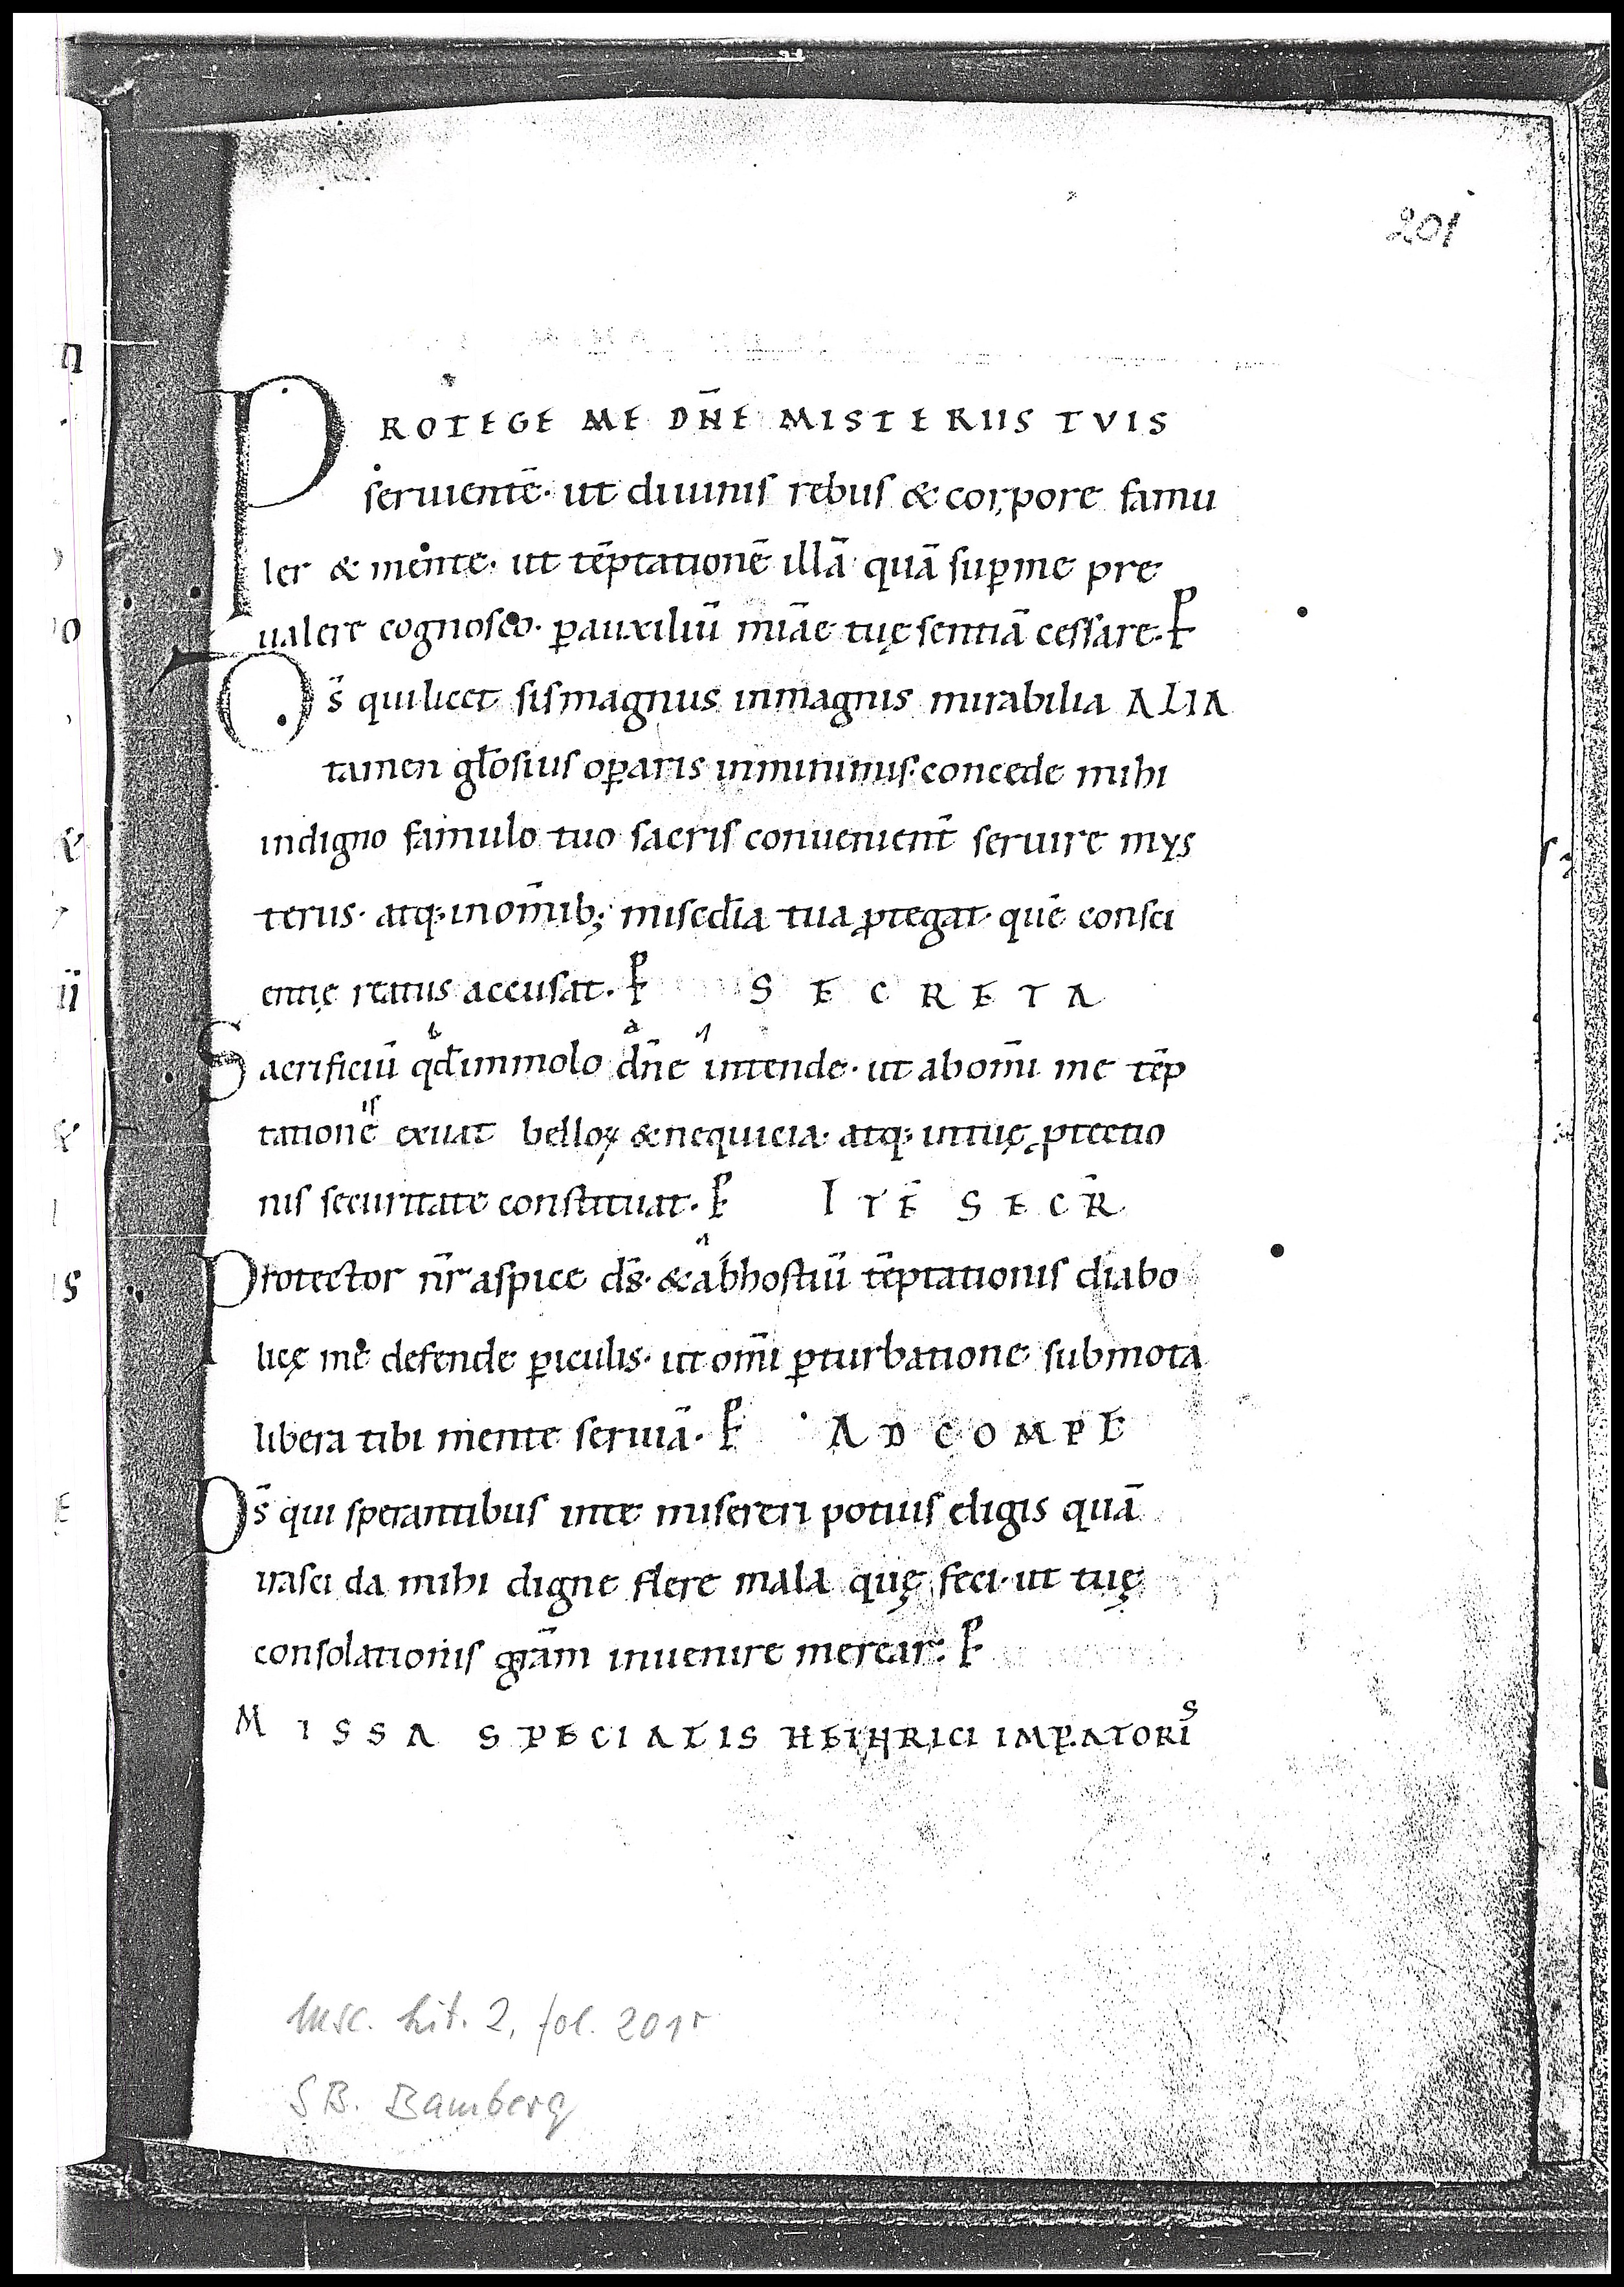 201
PROTEGE ME DN̄E MISTERIIS TVIS
seruientē· ut diuinis rebus & corpore famu
ler & mente· ut tēptationē illā quā sup̱me pre
ualere cognosco· p̱auxiliū miāe tuę sentiā cessare· P̱
Ds̄ qui licet sis magnus inmagnis mirabilia ALIA
tamen gl̄osius op̱aris inminimis· concede mihi
indigno famulo tuo sacris conuenient̄ seruire mys
teriis· atq; inom̄ib; misedia tua ꝓtegat· quē consci
entię reatus accusat· P̱ SECRETA
Sacrificiū qd̄ immolo dn̄e intende· ut abom̄i me tēp
tationē exuat belloꝝ & nequicia· atq; intuę ꝓtectio
is
nis securitate constituat· P̱ ITĒ SECR̄
Protector nr̄ aspice ds̄· & abhostiū tēptationis diabo
licę me defende p̱iculis· ut om̄i p̱turbatione submota
libera tibi mente seruiā· P̱ AD COMPL
Ds̄ qui sperantibus inte misereri potius eligis quā
irasci da mihi digne flere mala quę feci· ut tuę
consolationis grām inuenire merear· P̱
MISSA SPECIALIS HEINRICI IMP̱ATORIS
Msc. Lit. 2, fol. 201r
SB. Bamberg